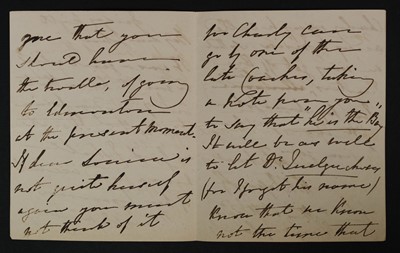 one that you
should have
the trouble, of going
to Edmonton
at the present moment.
If dear Louisa is
not quite herself
again you must
not think of it
for Charly can
go by one of the
late Coaches, taking
a note from you,
to say that "he is the Boy"
It will be as well
to let Dr. Quelquechose
(for I forget his name)
know that we know
not the time that